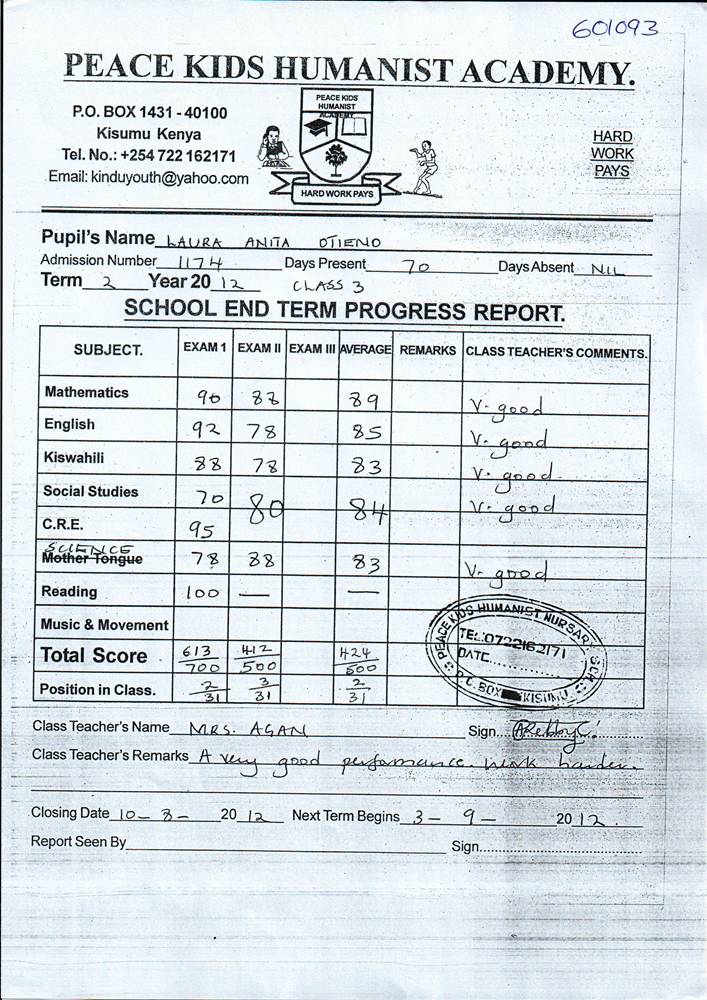 601093
PEACE KIDS HUMANIST ACADEMY.
P.O. BOX 1431 - 40100
Kisumu Kenya
Tel. No.: +254 722 162171
Email: kinduyouth@yahoo.com
PEACE KIDS
HUMANIST
ACADEMY
HARD WORK PAYS
HARD
WORK
PAYS
Pupil's Name LAURA ANITA OTIENO
Admission Number 1174 Days Present 70 Days Absent NIL
Term 2 Year 2012 CLASS 3
SCHOOL END TERM PROGRESS REPORT.
SUBJECT. EXAM 1 EXAM II EXAM III AVERAGE REMARKS CLASS TEACHER'S COMMENTS.
Mathematics 90 88 89 V. good
English 92 78 85 V. good
Kiswahili 88 78 83 V. good
Social Studies 70 80 84 V. good
C.R.E. 95
SCIENCE
Mother Tongue 78 88 83 V. good
Reading 100 — —
Music & Movement
Total Score 613/700 412/500 424/500
Position in Class. 2/31 3/31 2/31
PEACE KIDS HUMANIST NURSARY SCH
TEL: 0722162171
DATE
P.O. BOX KISUMU
Class Teacher's Name MRS. AGAN Sign....
Class Teacher's Remarks A very good performance. Work harder.
Closing Date 10 - 8 - 2012 Next Term Begins 3 - 9 - 2012.
Report Seen By Sign....